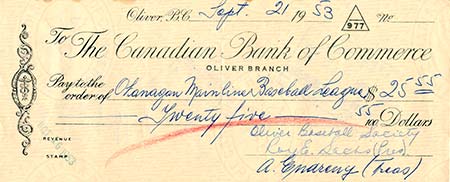 Oliver, B.C. Sept. 21 1953 No
977
To The Canadian Bank of Commerce
OLIVER BRANCH
Pay to the order of Okanagan Mainline Baseball League $ 25 55
Twenty five 55/100 Dollars
REVENUE
STAMP
Oliver Baseball Society
(Pres)
A. (Treas)